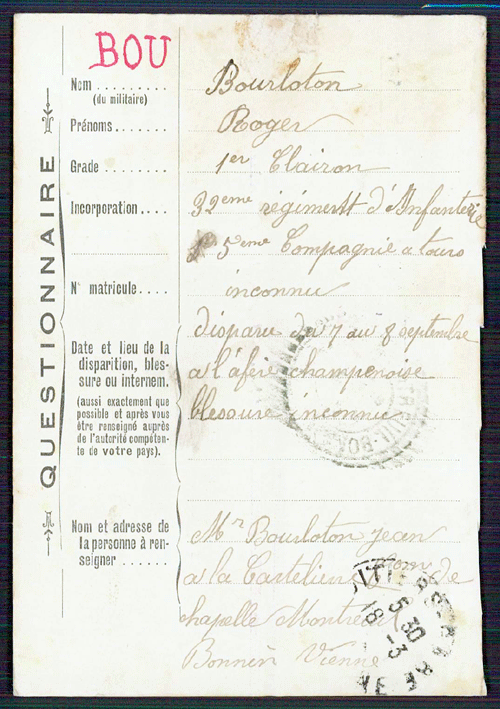 BOU
QUESTIONNAIRE
Nom .......... Bourloton
(du militaire)
Prénoms ....... Roger
Grade ........ 1er Clairon
Incorporation .... 32eme régiment d'Infanterie
5eme Compagnie a tours
N° matricule ..... inconnu
Date et lieu de la disparu du 7 au 8 septembre
disparition, bles- a la fère champenoise
sure ou internem. blessure inconnu
(aussi exactement que
possible et après vous
être renseigné auprès
de l'autorité compéten-
te de votre pays).
Nom et adresse de Mr Bourloton jean
la personne à ren- a la de
seigner ...... chapelle Montreuil
Bonnin Vienne
5 30
18 -3